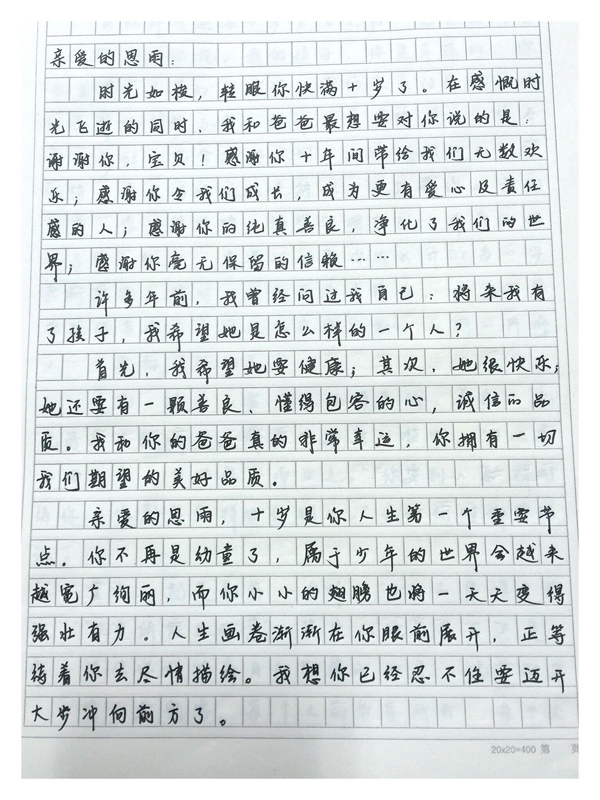 亲爱的思雨：
时光如梭，转眼你快满十岁了。在感慨时
光飞逝的同时、我和爸爸最想要对你说的是：
谢谢你，宝贝！感谢你十年间带给我们无数欢
乐；感谢你令我们成长，成为更有爱心及责任
感的人；感谢你的纯真善良，净化了我们的世
界；感谢你毫无保留的信赖……
许多年前，我曾经问过我自己：将来我有
了孩子，我希望她是怎么样的一个人？
首先，我希望她要健康；其次，她很快乐；
她还要有一颗善良、懂得包容的心，诚信的品
质。我和你的爸爸真的非常幸运，你拥有一切
我们期望的美好品质。
亲爱的思雨，十岁是你人生第一个重要节
点。你不再是幼童了，属于少年的世界会越来
越宽广绚丽，而你小小的翅膀也将一天天变得
强壮有力。人生画卷渐渐在你眼前展开，正等
待着你去尽情描绘。我想你已经忍不住要迈开
大步冲向前方了。
20×20=400 第 页